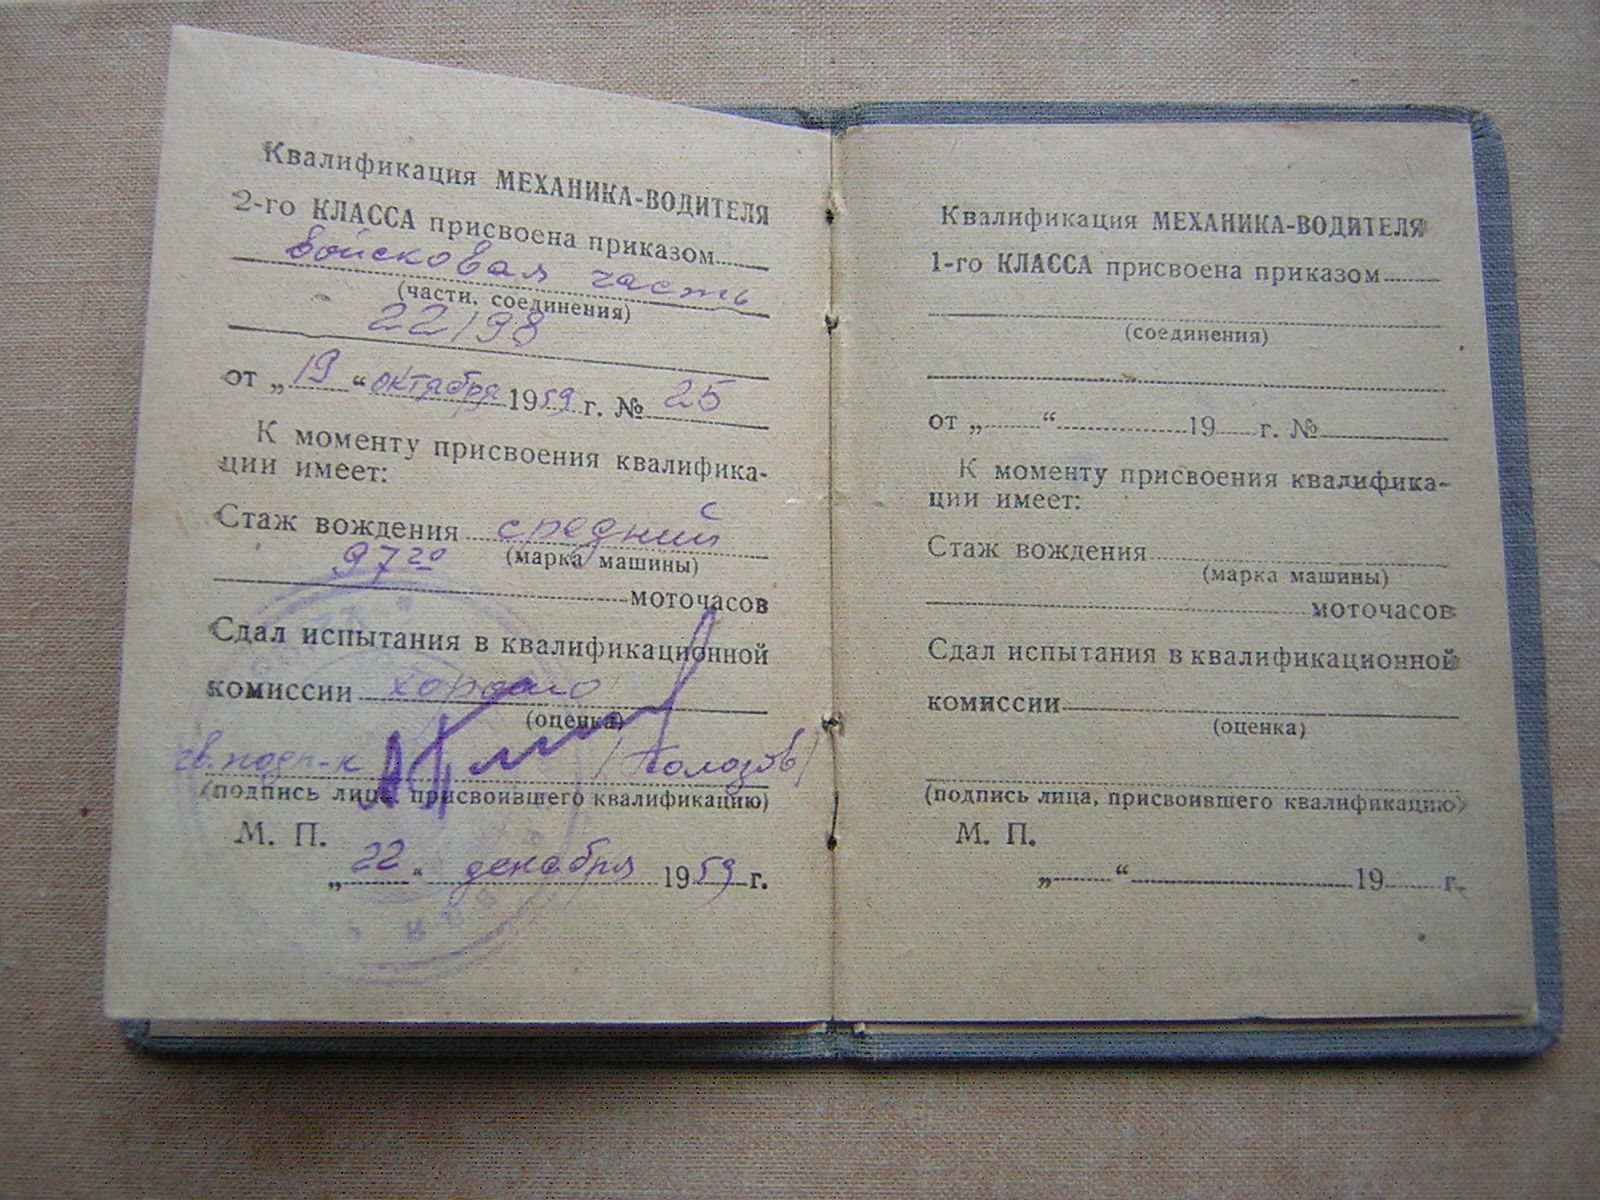 Квалификация МЕХАНИКА-ВОДИТЕЛЯ
2-го КЛАССА присвоена приказом
войсковая часть
(части, соединения)
22198
от „ 19 “ октября 1959 г. № 25
К моменту присвоения квалифика-
ции имеет:
Стаж вождения средний
(марка машины)
97 20
моточасов
Сдал испытания в квалификационной
комиссии хорошо
(оценка)
гв. подп-к /Полозов/
(подпись лица, присвоившего квалификацию)
М. П.
„ 22 “ декабря 1959 г.
Квалификация МЕХАНИКА-ВОДИТЕЛЯ
1-го КЛАССА присвоена приказом
(соединения)
от „ “ 19 г. №
К моменту присвоения квалифика-
ции имеет:
Стаж вождения
(марка машины)
моточасов
Сдал испытания в квалификационной
комиссии
(оценка)
(подпись лица, присвоившего квалификацию)
М. П.
„ “ 19 г.